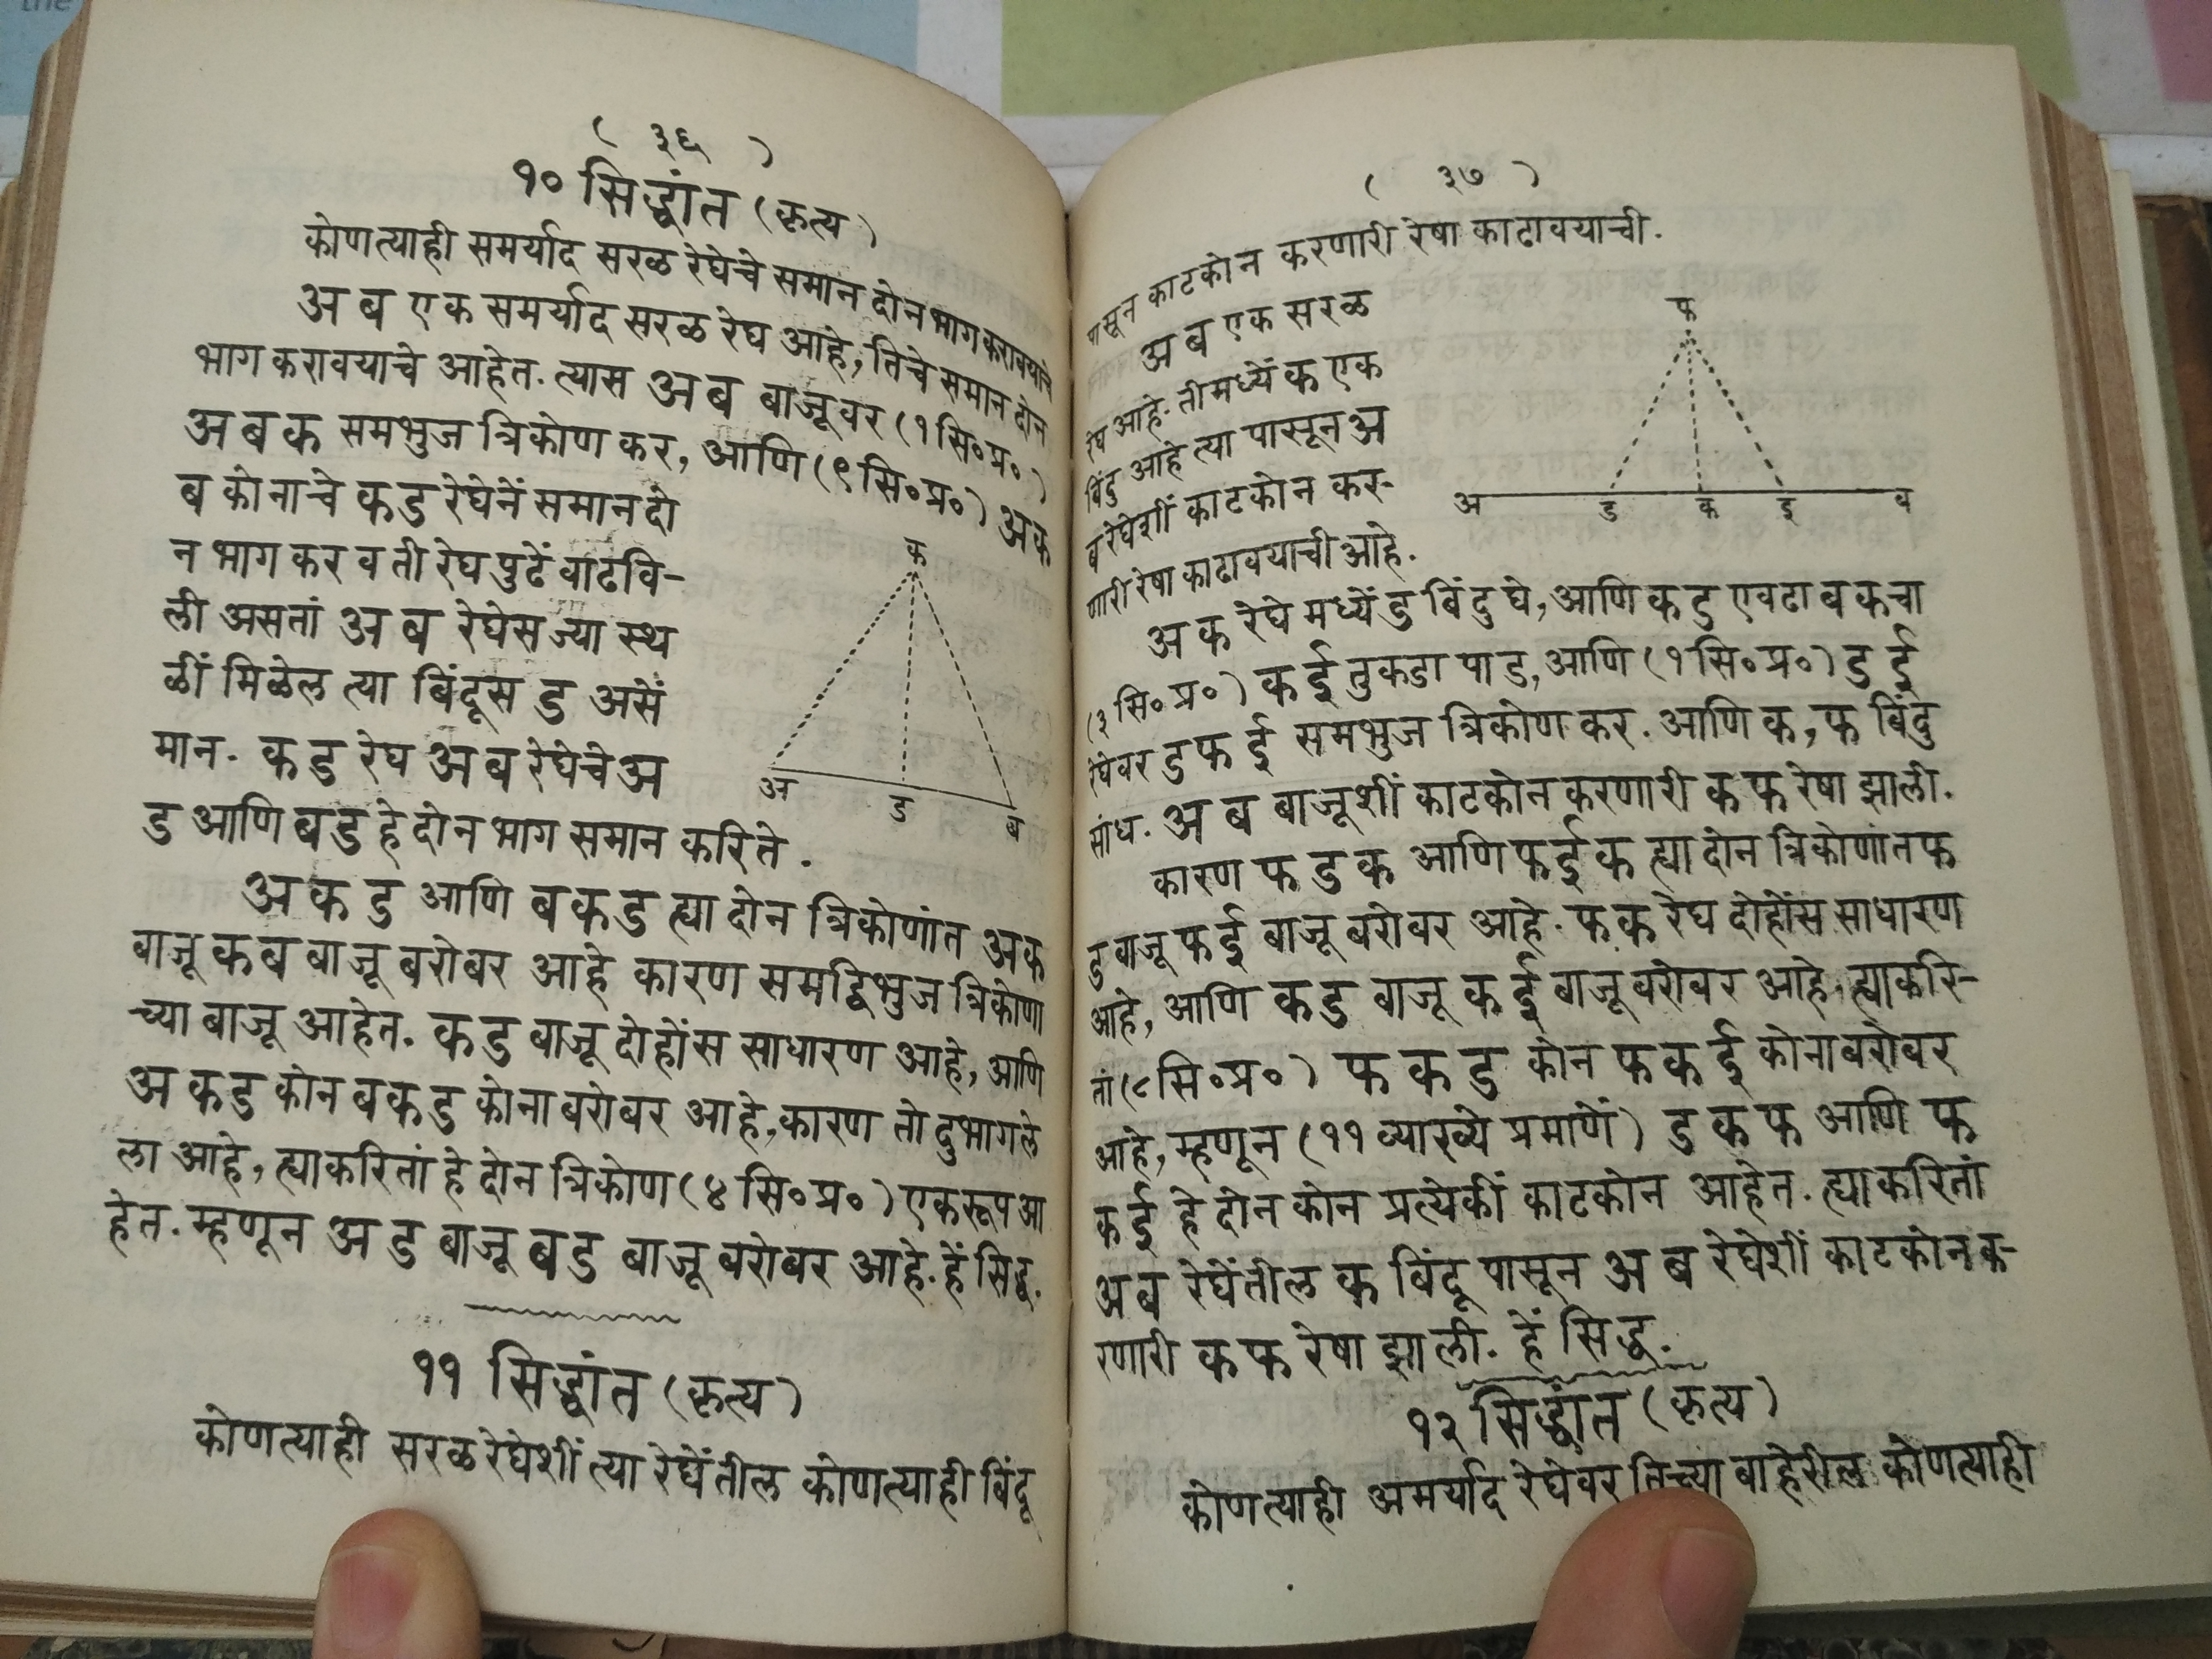 ( ३६ )
१० सिद्धांत (कृत्य)
कोणत्याही समर्याद सरळ रेघेचे समान दोन भाग करावयाचे
अ ब एक समर्याद सरळ रेघ आहे, तिचे समान दोन
भाग करावयाचे आहेत. त्यास अ ब बाजूवर (१ सि॰ प्र॰)
अ ब क समभुज त्रिकोण कर, आणि (९ सि॰ प्र॰) अ क
ब कोनाचे क ड रेघेनें समान दो
न भाग कर व ती रेघ पुढें वाढवि-
ली असतां अ ब रेघेस ज्या स्थ
ळीं मिळेल त्या बिंदूस ड असें
मान. क ड रेघ अ ब रेघेचे अ
ड आणि ब ड हे दोन भाग समान करिते.
क
अ
ड
ब
अ क ड आणि ब क ड ह्या दोन त्रिकोणांत अ क
बाजू क ब बाजू बरोबर आहे कारण समद्विभुज त्रिकोणा
च्या बाजू आहेत. क ड बाजू दोहोंस साधारण आहे, आणि
अ क ड कोन ब क ड कोना बरोबर आहे, कारण तो दुभागले
ला आहे, ह्याकरितां हे दोन त्रिकोण (४ सि॰ प्र॰) एकरूप आ
हेत. म्हणून अ ड बाजू ब ड बाजू बरोबर आहे. हें सिद्ध.
११ सिद्धांत (कृत्य)
कोणत्याही सरळ रेघेशीं त्या रेघेंतील कोणत्याही बिंदू
( ३७ )
पासून काटकोन करणारी रेषा काढावयाची.
अ ब एक सरळ
रेघ आहे. तीमध्यें क एक
बिंदु आहे त्या पासून अ
ब रेघेशीं काटकोन कर-
णारी रेषा काढावयाची आहे.
फ
अ
ड
क
ई
ब
अ क रेघे मध्यें ड बिंदु घे, आणि क ड एवढा ब क चा
(३ सि॰ प्र॰) क ई तुकडा पाड, आणि (१ सि॰ प्र॰) ड ई
रेघेवर ड फ ई समभुज त्रिकोण कर. आणि क, फ बिंदु
सांध. अ ब बाजूशीं काटकोन करणारी क फ रेषा झाली.
कारण फ ड क आणि फ ई क ह्या दोन त्रिकोणांत फ
ड बाजू फ ई बाजू बरोबर आहे. फ क रेघ दोहोंस साधारण
आहे, आणि क ड बाजू क ई बाजू बरोबर आहे, ह्याकरि-
तां (८ सि॰ प्र॰) फ क ड कोन फ क ई कोना बरोबर
आहे, म्हणून (११ व्याख्ये प्रमाणें) ड क फ आणि फ
क ई हे दोन कोन प्रत्येकीं काटकोन आहेत. ह्याकरितां
अ ब रेघेंतील क बिंदू पासून अ ब रेघेशीं काटकोन क-
रणारी क फ रेषा झाली. हें सिद्ध.
१२ सिद्धांत (कृत्य)
कोणत्याही अमर्याद रेघेवर तिच्या बाहेरील कोणत्याही